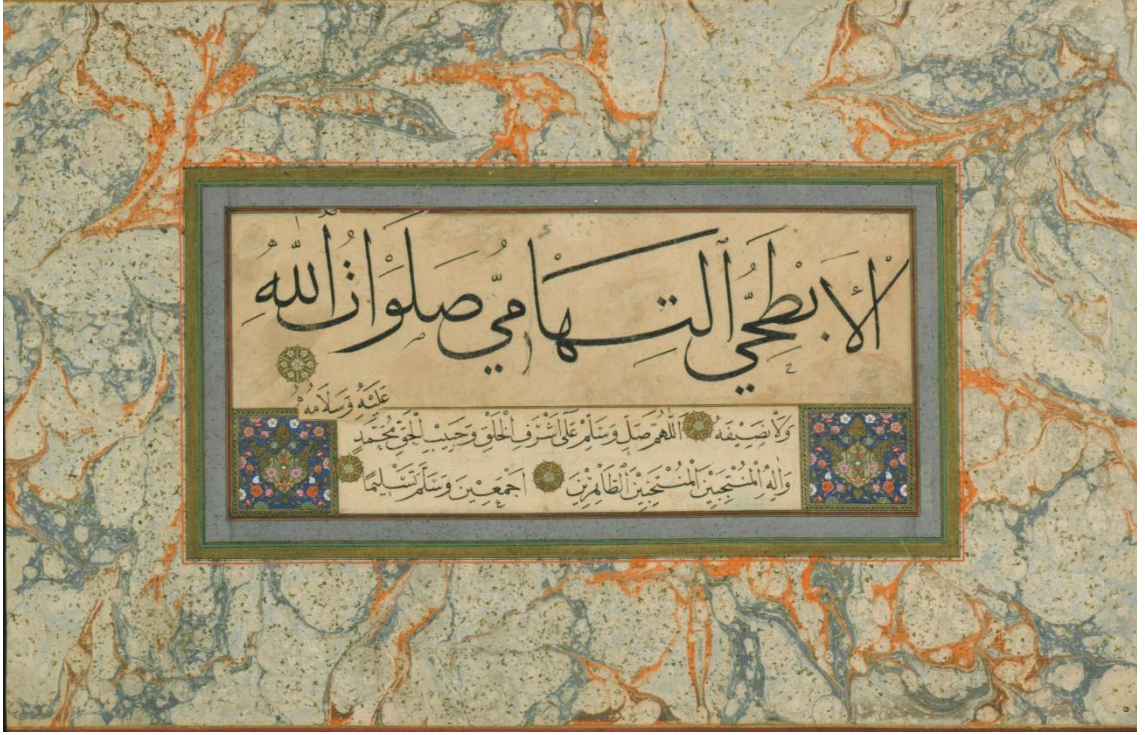 الأبطحي التهامي صلوات الله
عليه وسلامه
ولا نصيفه اللهم صل وسلم على أشرف الخلق وحبيب الحق محمد
وآله المنتجبين الطاهرين أجمعين وسلم تسليما